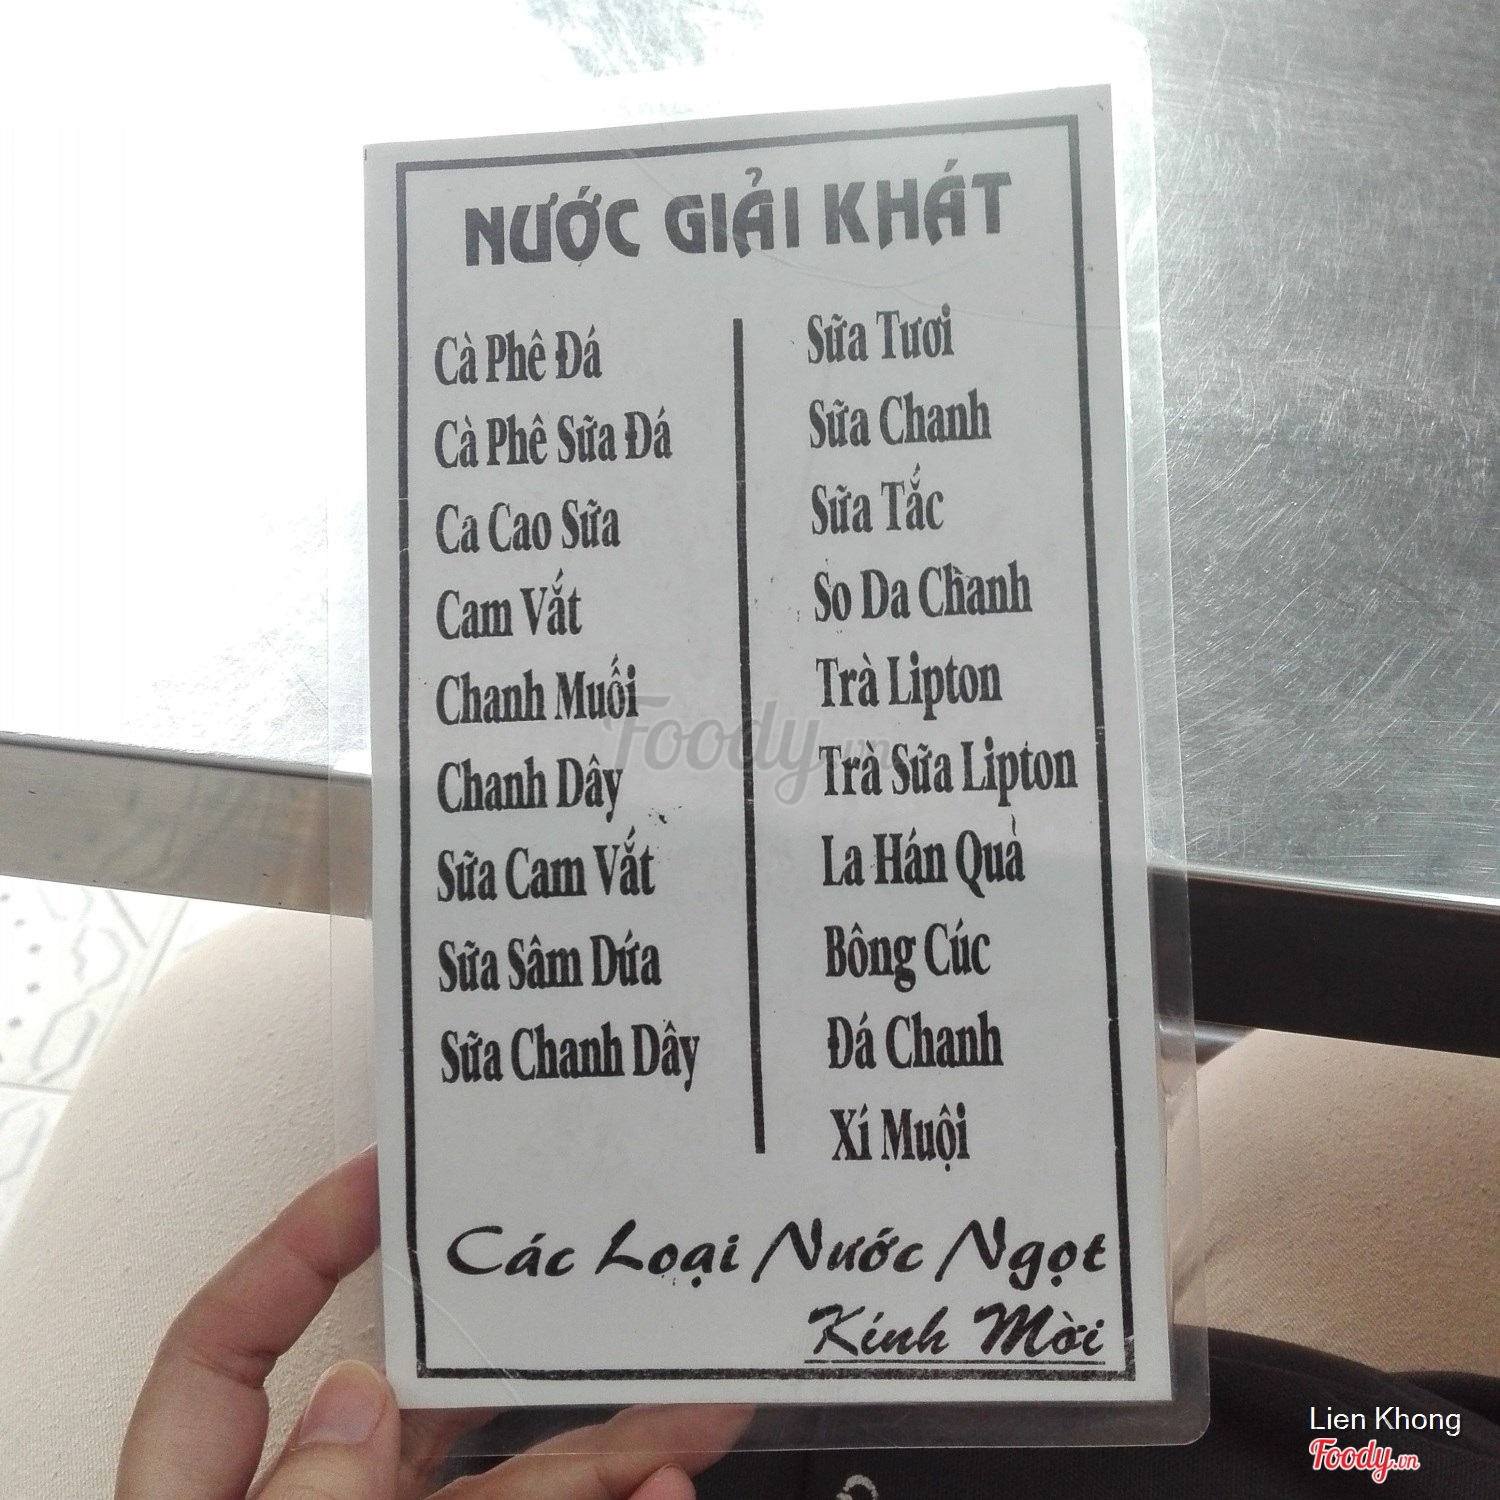 NƯỚC GIẢI KHÁT
Cà Phê Đá
Cà Phê Sữa Đá
Ca Cao Sữa
Cam Vắt
Chanh Muối
Chanh Dây
Sữa Cam Vắt
Sữa Sâm Dứa
Sữa Chanh Dây
Sữa Tươi
Sữa Chanh
Sữa Tắc
So Da Chanh
Trà Lipton
Trà Sữa Lipton
La Hán Quả
Bông Cúc
Đá Chanh
Xí Muội
Các Loại Nước Ngọt
Kính Mời
Foody.vn
Lien Khong
Foody.vn